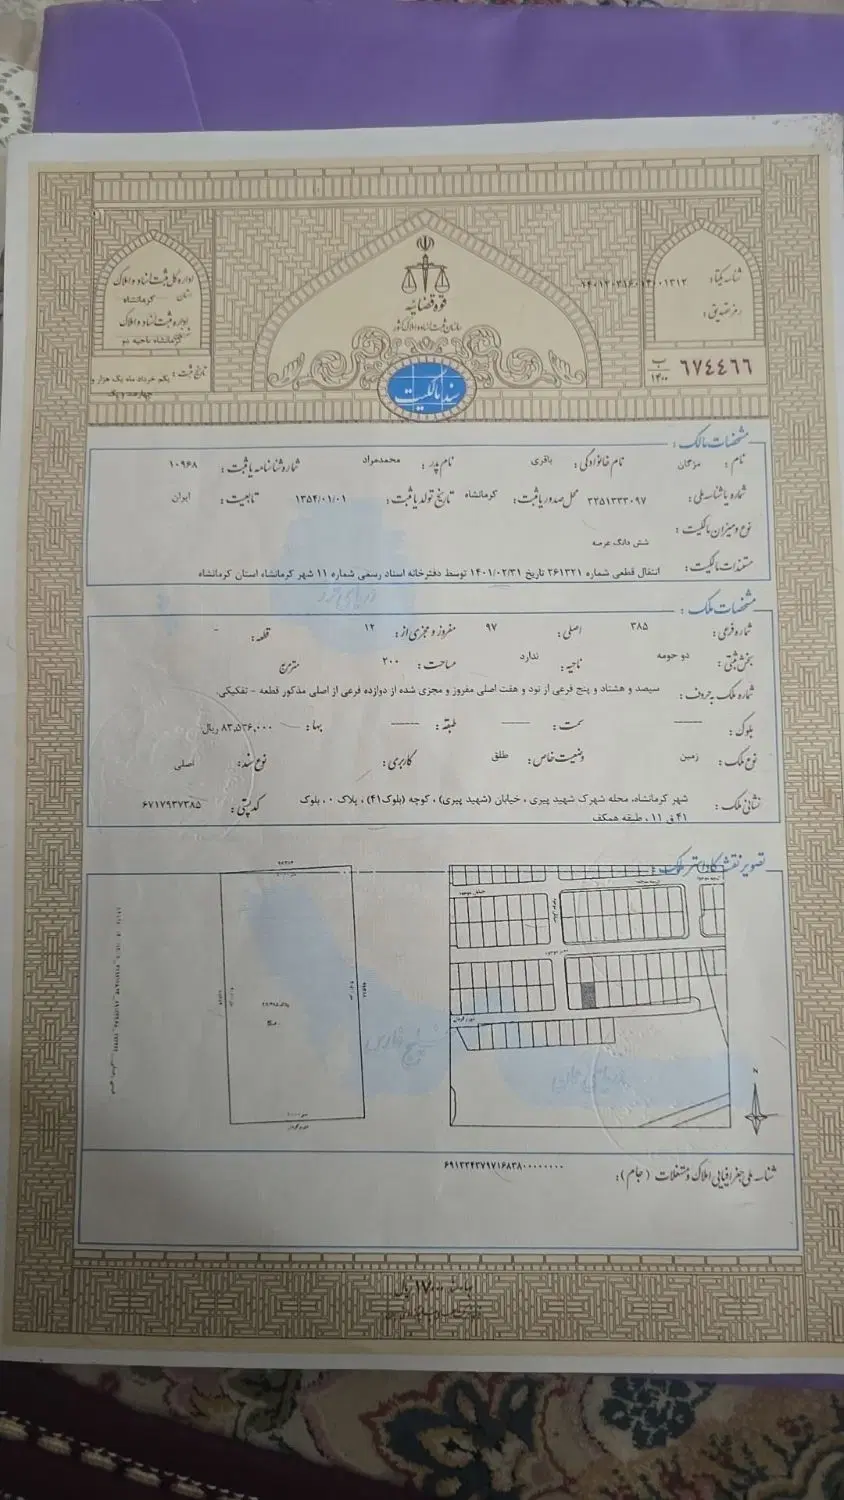 قوه قضائیه
سازمان ثبت اسناد و املاک کشور
سند مالکیت
شناسه یکتا:
رمز تصدیق:
۶۷٤٤۶۶
ب
۱۴۰۰
اداره کل ثبت اسناد و املاک
استان کرمانشاه
اداره ثبت اسناد و املاک
کرمانشاه ناحیه دو
تاریخ ثبت: یکم خرداد ماه یک هزار و
چهارصد و یک
مشخصات مالک:
نام: مژگان نام خانوادگی: باقری نام پدر: محمدمراد شماره شناسنامه یا ثبت: ۱۰۹۶۸
شماره یا شناسه ملی: ۳۲۵۱۳۳۳۰۹۷ محل صدور یا ثبت: کرمانشاه تاریخ تولد یا ثبت: ۱۳۵۴/۰۱/۰۱ تابعیت: ایران
نوع و میزان مالکیت: شش دانگ عرصه
مستندات مالکیت: انتقال قطعی شماره ۲۶۱۳۲۱ تاریخ ۱۴۰۱/۰۲/۳۱ توسط دفترخانه اسناد رسمی شماره ۱۱ شهر کرمانشاه استان کرمانشاه
مشخصات ملک:
شماره فرعی: ۳۸۵ اصلی: ۹۷ مفروز و مجزی از: ۱۲ قطعه: -
بخش ثبتی: دو حومه ناحیه: ندارد مساحت: ۲۰۰ مترمربع
شماره ملک به حروف: سیصد و هشتاد و پنج فرعی از نود و هفت اصلی مفروز و مجزی شده از دوازده فرعی از اصلی مذکور قطعه - تفکیکی.
بلوک: —— سمت: —— طبقه: —— بها: ۸۳,۵۳۶,۰۰۰ ریال
نوع ملک: زمین وضعیت خاص: طلق کاربری: نوع سند: اصلی
نشانی ملک: شهر کرمانشاه، محله شهرک شهید پیری ، خیابان (شهید پیری) ، کوچه (بلوک۴۱) ، پلاک ۰ ، بلوک کد پستی: ۶۷۱۷۹۳۷۳۸۵
۴۱ ق ۱۱ ، طبقه همکف
تصویر نقشه کاداستر ملک:
N
شناسه ملی جغرافیایی املاک و مستغلات (جام):